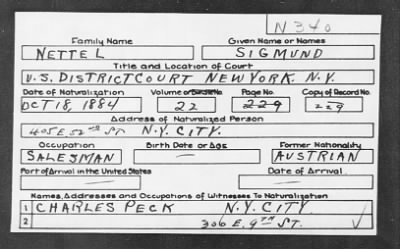 N 340
Family Name Given Name or Names
NETTEL SIGMUND
Title and Location of Court
U.S. DISTRICT COURT NEW YORK. N.Y.
Date of Naturalization Volume or Bundle No. Page No. Copy of Record No.
OCT 18, 1884 22 229 229
Address of Naturalized Person
405 E. 52ND ST N.Y. CITY.
Occupation Birth Date or Age Former Nationality
SALESMAN — AUSTRIAN
Port of Arrival in the United States Date of Arrival
— —
Names, Addresses and Occupations of Witnesses To Naturalization
1 CHARLES PECK N.Y. CITY
2 306 E. 9TH ST.